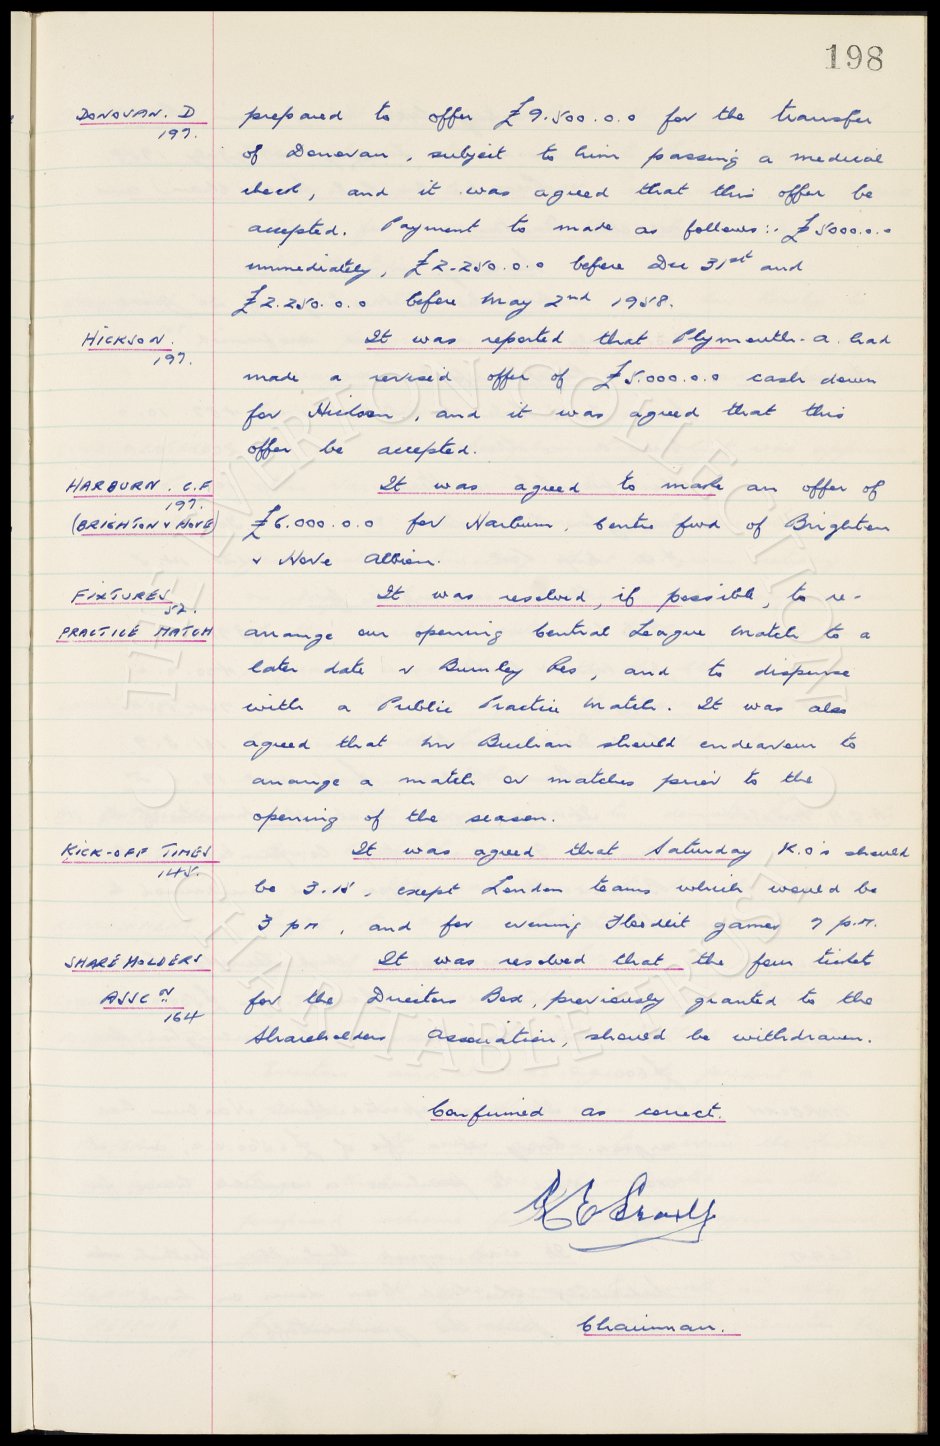 198
DONOVAN. D prepared to offer £9.500.0.0 for the transfer
197. of Donovan, subject to him passing a medical
check, and it was agreed that this offer be
accepted. Payment to made as follows:- £5000.0.0
immediately, £2.250.0.0 before Dec 31st and
£2.250.0.0 before May 2nd 1958.
HICKSON. It was reported that Plymouth. A. had
197. made a revised offer of £5.000.0.0 cash down
for Hickson, and it was agreed that this
offer be accepted.
HARBURN. C.F It was agreed to make an offer of
197.
(BRIGHTON & HOVE) £6.000.0.0 for Harburn, Centre fwd of Brighton
& Hove Albion.
FIXTURES It was resolved, if possible, to re-
52.
PRACTICE MATCH arrange our openning Central League Match to a
later date v Burnley Res, and to dispense
with a Public Practice Match. It was also
agreed that Mr Buchan should endeavour to
arrange a match or matches prior to the
opening of the season.
KICK-OFF TIMES It was agreed that Saturday K.O's should
148. be 3.15, except London teams which would be
3 pm, and for evening Floodlit games 7 p.m.
SHAREHOLDERS It was resolved that the four tickets
ASSCN for the Directors Box, previously granted to the
164 Shareholders Association, should be withdrawn.
Confirmed as correct.
Chairman.
THE EVERTON COLLECTION
CHARITABLE TRUST